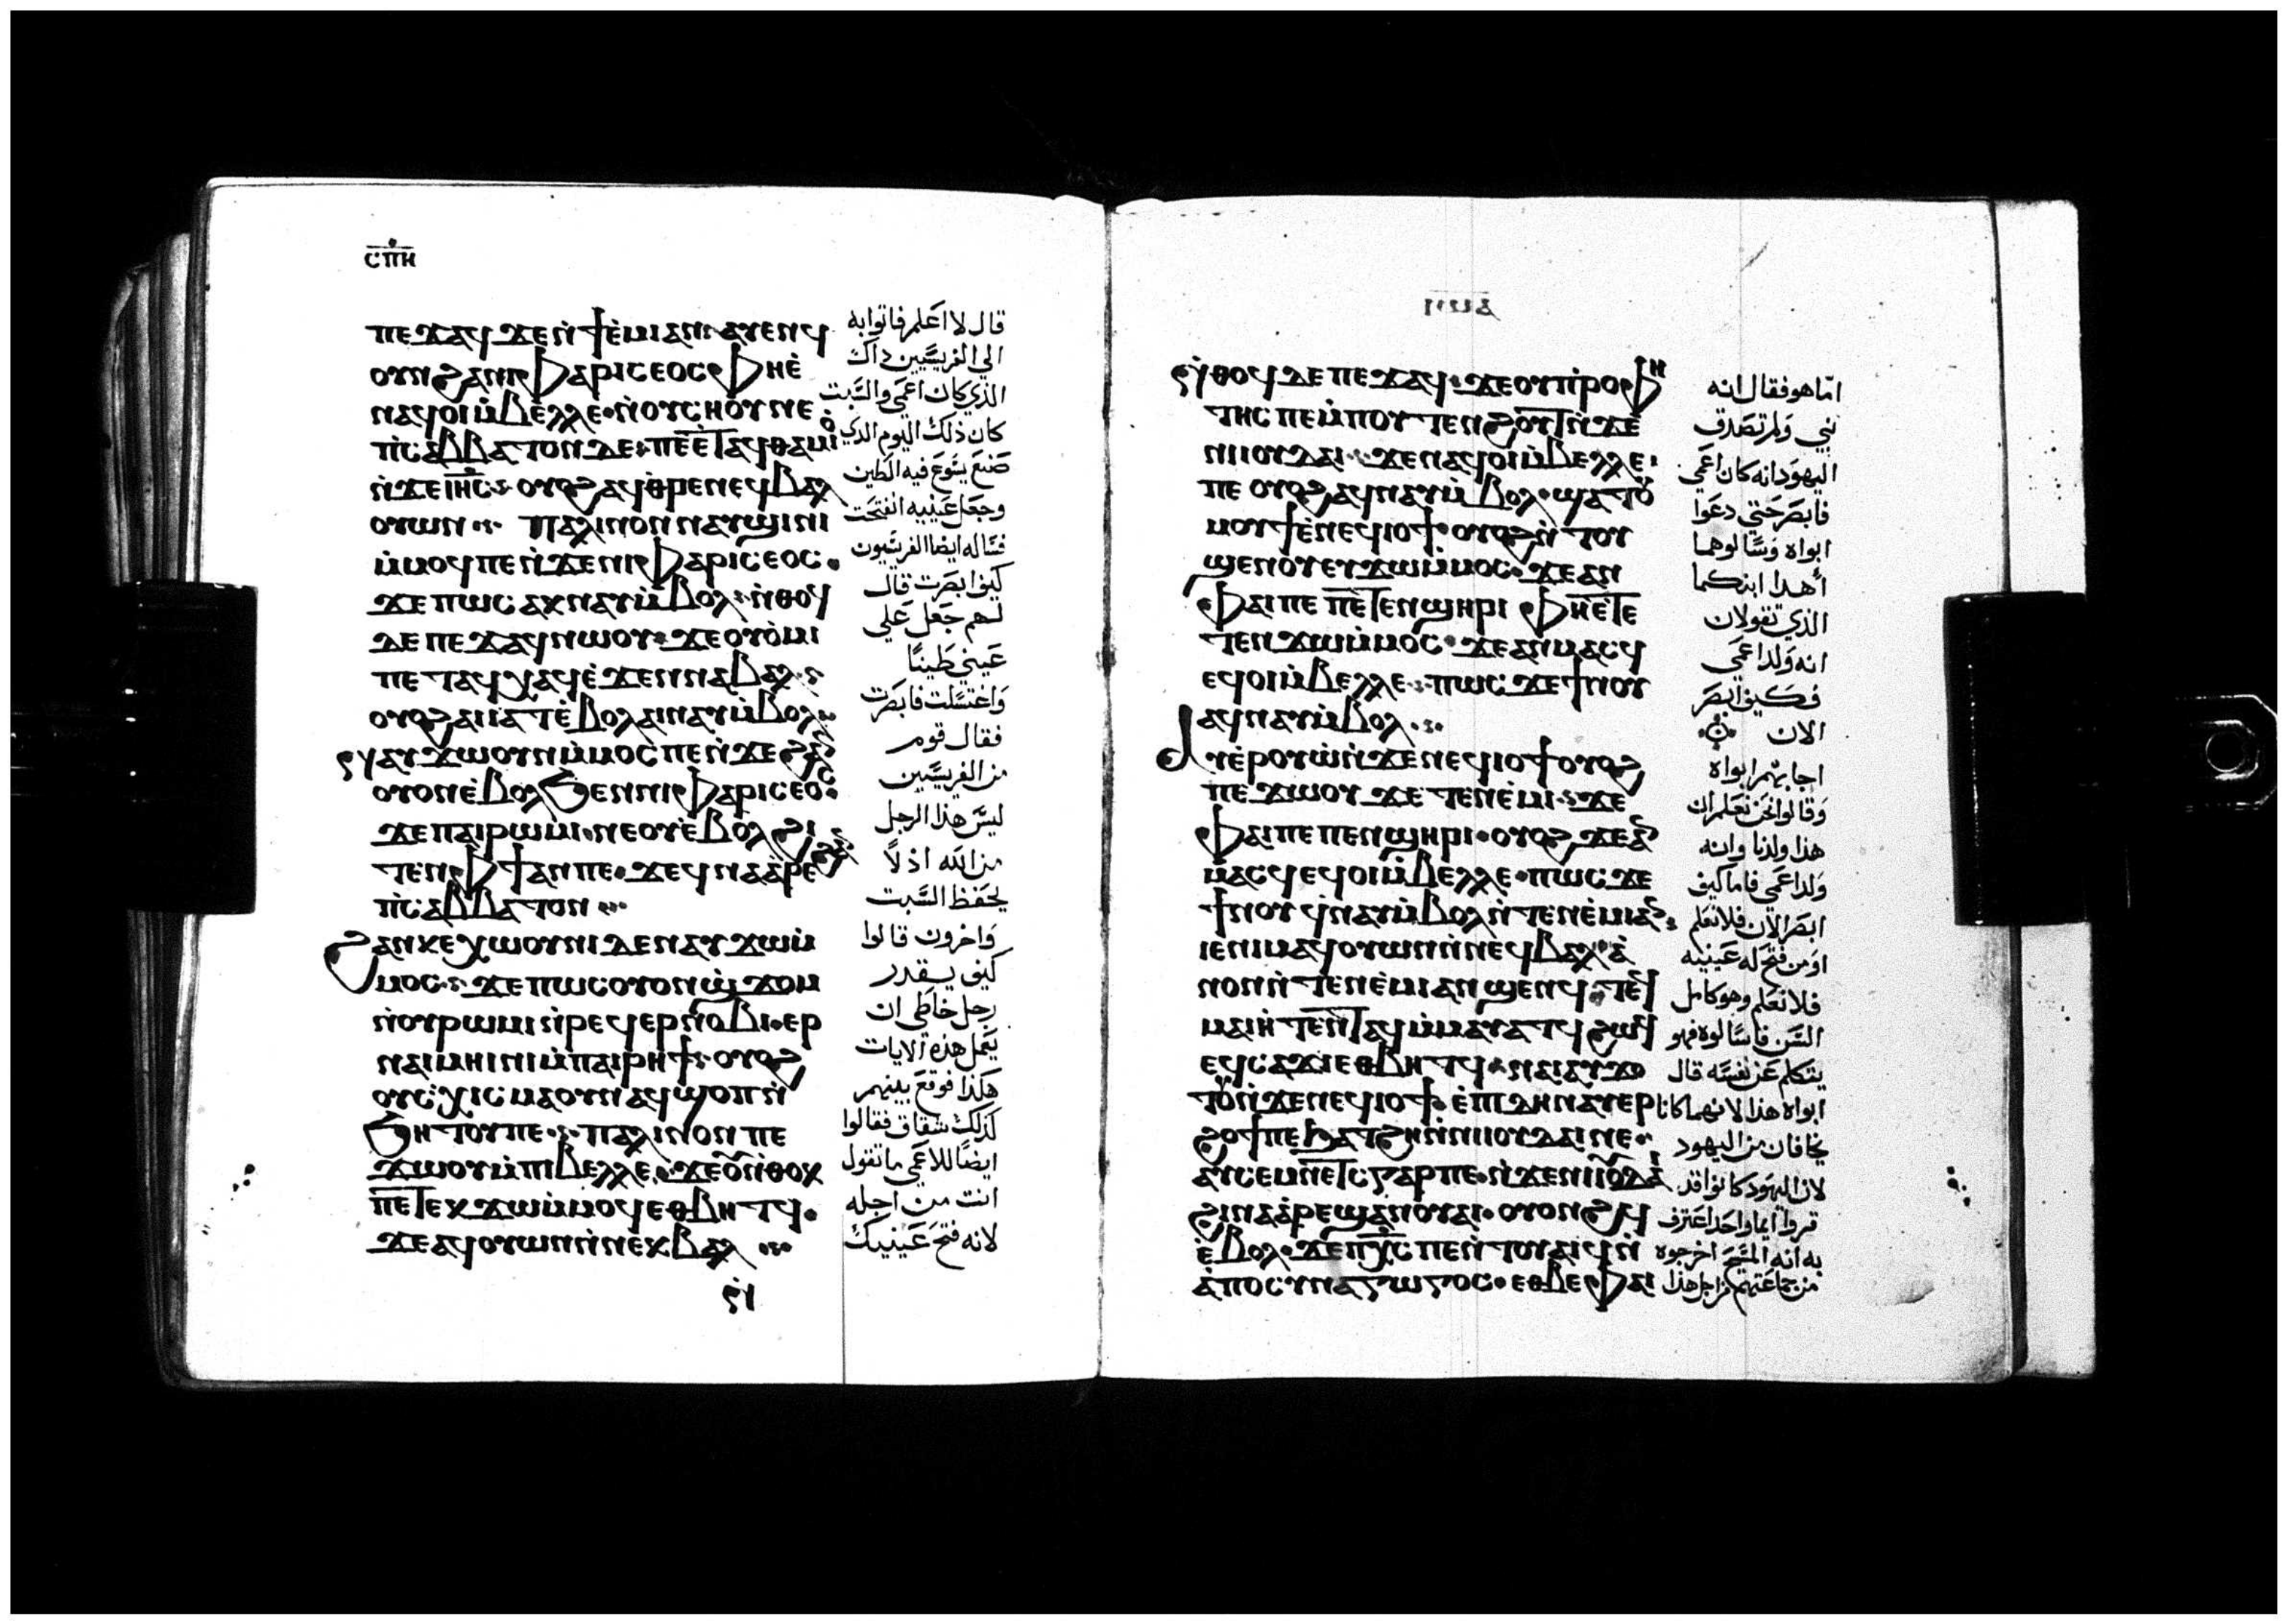 ⲥⲡⲏ
ⲡⲉϫⲁϥ ϫⲉⲛ̀ϯⲉ̀ⲙⲓ ⲁⲛ ⲁⲩⲉⲛϥ
ⲟⲩⲛ ϩⲁⲛⲓⲫⲁⲣⲓⲥⲉⲟⲥ ⲫⲏⲉ̀
ⲛⲁϥⲟⲓ ⲙ̀ⲃⲉⲗⲗⲉ
ⲡⲓⲥⲁⲃⲃⲁⲧⲟⲛ ⲇⲉ ⲡⲉ ⲉⲧⲁϥⲑⲁⲙⲓⲟ
ⲛ̀ϫⲉ ⲓⲏⲥ ⲟⲩⲟϩ ⲁϥⲑⲣⲉ ⲛⲉϥⲃⲁⲗ
ⲟⲩⲱⲛ ⲡⲁⲗⲓⲛ ⲟⲛ ⲛⲁⲩϣⲓⲛⲓ
ⲙ̀ⲙⲟϥ ⲡⲉ ⲛ̀ϫⲉⲛⲓⲫⲁⲣⲓⲥⲉⲟⲥ
ϫⲉ ⲡⲱⲥ ⲁⲕⲛⲁⲩ ⲙ̀ⲃⲟⲗ ⲛ̀ⲑⲟϥ
ⲇⲉ ⲡⲉϫⲁϥ ⲛⲱⲟⲩ ϫⲉ ⲟⲩⲟ̀ⲙⲓ
ⲡⲉⲧⲁϥⲭⲁϥ ⲉ̀ϫⲉⲛ ⲛⲁⲃⲁⲗ
ⲟⲩⲟϩ ⲁⲓⲓⲁⲧ ⲉ̀ⲃⲟⲗ ⲁⲓⲛⲁⲩ ⲙ̀ⲃⲟⲗ
ⲛⲁⲩϫⲱⲟⲩⲛ ⲙ̀ⲙⲟⲥ ⲡⲉ ⲛ̀ϫⲉ ϩⲁⲛ
ⲟⲩⲟⲛ ⲉ̀ⲃⲟⲗ ϧⲉⲛ ⲛⲓⲫⲁⲣⲓⲥⲉⲟⲥ
ϫⲉ ⲡⲁⲓⲣⲱⲙⲓ ⲛⲉ ⲟⲩⲉ̀ⲃⲟⲗ ϩⲓ
ⲧⲉⲛ ⲫϯ ⲁⲛ ⲡⲉ ϫⲉ ϥⲛⲁⲁ̀ⲣⲉϩ
ⲡⲓⲥⲁⲃⲃⲁⲧⲟⲛ
ϩⲁⲛⲕⲉⲭⲱⲟⲩⲛⲓ ⲇⲉ ⲛⲁⲩϫⲱⲙ̀
ⲙⲟⲥ ϫⲉ ⲡⲱⲥ ⲟⲩⲟⲛ ϣ̀ϫⲟⲙ
ⲛ̀ⲟⲩⲣⲱⲙⲓ ⲛ̀ⲣⲉϥⲉⲣⲛⲟⲃⲓ ⲉⲣ
ⲛⲁⲓⲙⲏⲓⲛⲓ ⲙ̀ⲡⲁⲓⲣⲏϯ ⲟⲩⲟϩ
ⲟⲩⲥⲭⲓⲥⲙⲁ ⲟⲩⲛ ⲁϥϣⲟⲡ ⲛ̀
ϧⲏⲧⲟⲩ ⲡⲉ ⲡⲁⲗⲓⲛ ⲟⲛ ⲡⲉ
ϫⲱⲟⲩ ⲙ̀ⲡⲓⲃⲉⲗⲗⲉ ϫⲉ ⲟⲩ ⲛ̀ⲑⲟⲕ
ⲡⲉⲧⲉⲕϫⲱ ⲙ̀ⲙⲟϥ ⲉⲑⲃⲏⲧϥ
ϫⲉ ⲁϥⲟⲩⲱⲛ ⲛ̀ⲛⲉⲕⲃⲁⲗ
قال لا اعلم فاتوا به
الي الفريسيين داك
الذي كان اعمي والسبت
كان ذلك اليوم الذي
صنع يسوع فيه الطين
وجعل عينيه انفتحت
فساله ايضا الفريسيون
كيف ابصرت قال
لهم جعل علي
عيني طينًا
واغتسلت فابصرت
فقال قوم
من الفريسيين
ليس هذا الرجل
من الله اذ لاً
يحفظ السبت
واخرون قالوا
كيف يقدر
رجل خاطي ان
يعمل هذه الايات
هكذا فوقع بينهم
لذلك شقاق فقالوا
ايضًا للاعمي ما تقول
انت من اجله
لانه فتح عينيك
ⲛ̀ⲑⲟϥ ⲇⲉ ⲡⲉϫⲁϥ ϫⲉ ⲟⲩⲡ̀ⲣⲟⲫⲏ
ⲧⲏⲥ ⲡⲉ ⲙ̀ⲡⲟⲩⲧⲉⲛϩⲟⲩⲧϥ ⲛ̀ϫⲉ
ⲛⲓⲓⲟⲩⲇⲁⲓ ϫⲉ ⲛⲁϥⲟⲓ ⲙ̀ⲃⲉⲗⲗⲉ
ⲡⲉ ⲟⲩⲟϩ ⲁϥⲛⲁⲩ ⲙ̀ⲃⲟⲗ ϣⲁⲧⲟⲩ
ⲙⲟⲩϯ ⲉ̀ⲛⲉϥⲓⲟϯ ⲟⲩⲟϩ ⲛ̀ⲧⲟⲩ
ϣⲉⲛⲟⲩ ⲉⲩϫⲱ ⲙ̀ⲙⲟⲥ ϫⲉ ⲁⲛ
ⲫⲁⲓ ⲡⲉ ⲡⲉⲧⲉⲛϣⲏⲣⲓ ⲫⲏⲉⲧⲉ
ⲧⲉⲛϫⲱ ⲙ̀ⲙⲟⲥ ϫⲉ ⲁⲛⲙⲁⲥϥ
ⲉϥⲟⲓ ⲙ̀ⲃⲉⲗⲗⲉ ⲡⲱⲥ ϫⲉ ϯⲛⲟⲩ
ⲁϥⲛⲁⲩ ⲙ̀ⲃⲟⲗ
ⲁⲩⲉ̀ⲣⲟⲩⲱ̀ ⲛ̀ϫⲉ ⲛⲉϥⲓⲟϯ ⲟⲩⲟϩ
ⲡⲉϫⲱⲟⲩ ϫⲉ ⲧⲉⲛⲉ̀ⲙⲓ ϫⲉ
ⲫⲁⲓ ⲡⲉ ⲡⲉⲛϣⲏⲣⲓ ⲟⲩⲟϩ ϫⲉ ⲁⲛ
ⲙⲁⲥϥ ⲉϥⲟⲓ ⲙ̀ⲃⲉⲗⲗⲉ ⲡⲱⲥ ϫⲉ
ϯⲛⲟⲩ ϥⲛⲁⲩ ⲙ̀ⲃⲟⲗ ⲛ̀ⲧⲉⲛⲉ̀ⲙⲓ ⲁⲛ
ⲓⲉ ⲛⲓⲙ ⲁϥⲟⲩⲱⲛ ⲛ̀ⲛⲉϥⲃⲁⲗ ⲁ̀
ⲛⲟⲛ ⲛ̀ⲧⲉⲛⲉ̀ⲙⲓ ⲁⲛ ϣⲉⲛϥ
ⲙⲁⲓⲏ ⲛ̀ⲧⲁϥ ⲙ̀ⲙⲁⲩⲁⲧϥ
ⲉϥⲥⲁϫⲓ ⲉⲑⲃⲏⲧϥ ⲛⲁⲓ ⲁⲩϫⲟ
ⲧⲟⲩ ⲛ̀ϫⲉ ⲛⲉϥⲓⲟϯ ⲉ̀ⲡⲓⲇⲏ ⲛⲁⲩⲉⲣ
ϩⲟϯ ⲡⲉ ϧⲁⲧϩⲏ ⲛ̀ⲛⲓⲓⲟⲩⲇⲁⲓ ⲛⲉ
ⲁⲩⲥⲉⲙⲛⲉⲧⲥ ⲅⲁⲣ ⲡⲉ ⲛ̀ϫⲉ ⲛⲓⲓⲟⲩⲇⲁⲓ
ϩⲓⲛⲁ ⲁ̀ⲣⲉϣⲁⲛ ⲟⲩⲁⲓ ⲟⲩⲟⲛϩϥ
ⲉ̀ⲃⲟⲗ ϫⲉ ⲡⲭⲥ ⲡⲉ ⲛ̀ⲧⲟⲩⲁⲓϥ ⲛ̀
ⲁ̀ⲡⲟⲥⲩⲛⲁⲅⲱⲅⲟⲥ ⲉⲑⲃⲉ ⲫⲁⲓ
امّا هو فقال انه
نبي ولم تصدق
اليهود انه كان اعمي
فابصر حتي دعوا
ابواه وسالوهما
أهذا ابنكما
الذي تقولان
انه ولد اعمي
فكيف ابصر
الان
اجابهم ابواه
وقالوا نحن نعلم ان
هذا ولدنا وانه
ولد اعمي فاما كيف
ابصر الان فلا نعلم
او من فتح له عينيه
فلا نعلم وهو كامل
السن فاسالوه فهو
يتكلم عن نفسه قال
ابواه هذا لانهما كانا
يخافان من اليهود
لان اليهود كانوا قد
قروا ايما واحد اعترف
به انه المسيح اخرجوه
من جماعتهم من اجل هذا